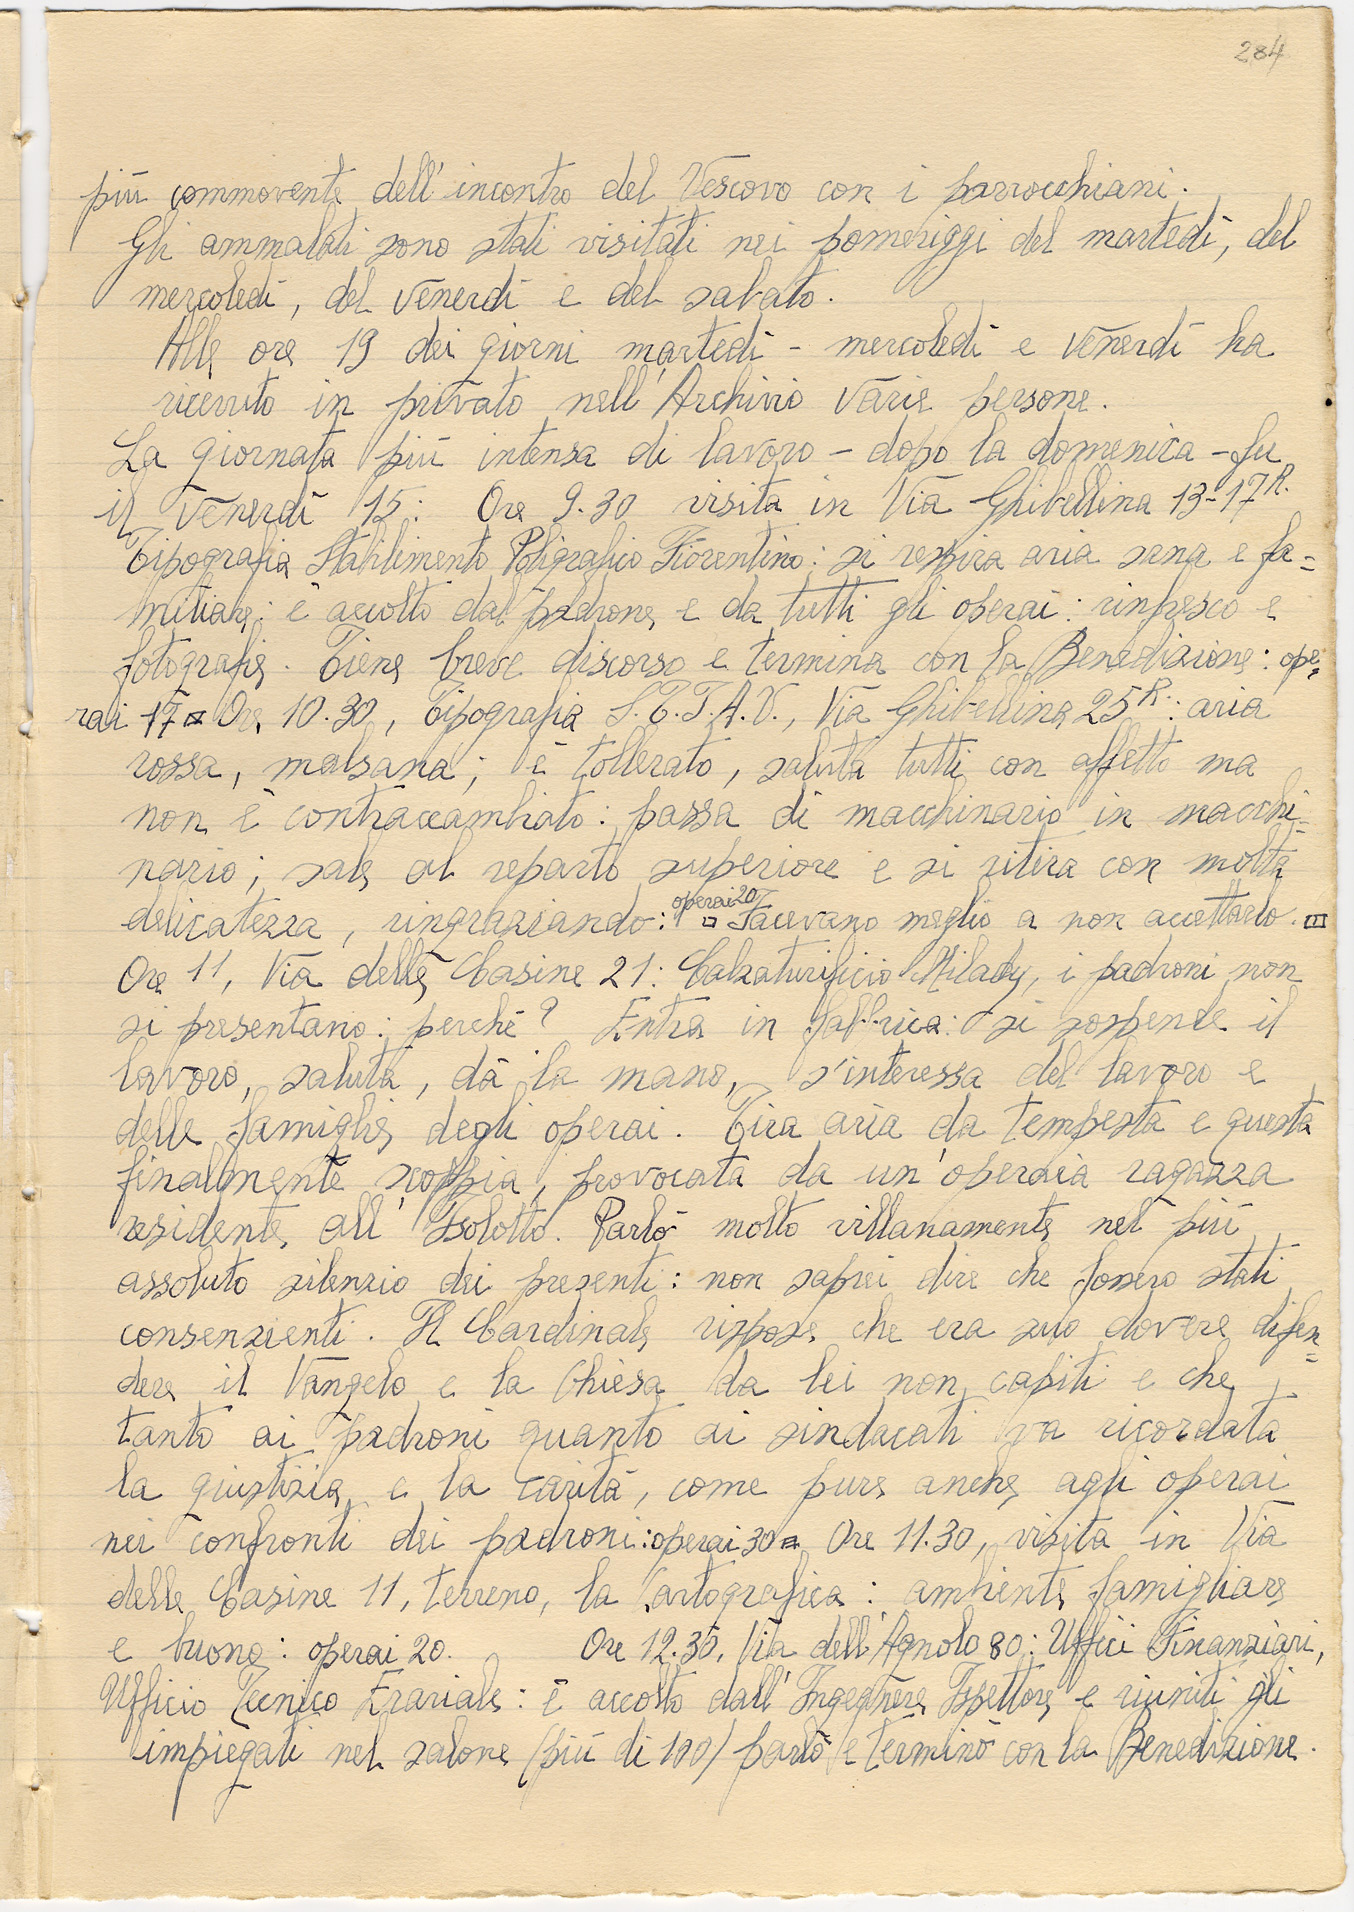 284
più commovente dell'incontro del Vescovo con i parrocchiani.
Gli ammalati sono stati visitati nei pomeriggi del martedì, del
mercoledì, del venerdì e del sabato.
Alle ore 19 dei giorni martedì - mercoledì e venerdì ha
ricevuto in privato nell'Archivio varie persone.
La giornata più intensa di lavoro - dopo la domenica - fu
il venerdì 15: Ore 9.30 visita in Via Ghibellina 13-17R.
Tipografia Stabilimento Poligrafico Fiorentino: si respira aria sana e fa=
miliare: è accolto dal padrone e da tutti gli operai: rinfresco e
fotografie. Tiene breve discorso e termina con la Benedizione: ope=
rai 17 Ore 10.30, Tipografia S.T.I.A.V., Via Ghibellina 25R: aria
rossa, malsana; è tollerato, saluta tutti con affetto ma
non è contraccambiato: passa di macchinario in macchi=
nario; sale al reparto superiore e si ritira con molta
delicatezza, ringraziando: operai 20 Facevano meglio a non accettarlo.
Ore 11, Via delle Casine 21: Calzaturificio Milady, i padroni non
si presentano: perchè? Entra in fabbrica: si sospende il
lavoro, saluta, dà la mano, s'interessa del lavoro e
delle famiglie degli operai. Tira aria da tempesta e questa
finalmente scoppia, provocata da un'operaia ragazza
residente all'Isolotto. Parlò molto villanamente nel più
assoluto silenzio dei presenti: non saprei dire che fossero stati
consenzienti. Il Cardinale rispose che era suo dovere difen=
dere il Vangelo e la Chiesa da lei non capiti e che
tanto ai padroni quanto ai sindacati va ricordata
la giustizia e la carità, come pure anche agli operai
nei confronti dei padroni: operai 30 Ore 11.30, visita in Via
delle Casine 11, terreno, la Cartografica: ambiente famigliare
e buono: operai 20. Ore 12.30, Via dell'Agnolo 80: Uffici Finanziari,
Ufficio Tecnico Erariale: è accolto dall'Ingegnere Ispettore e riuniti gli
impiegati nel salone (più di 100) parlò e terminò con la Benedizione.